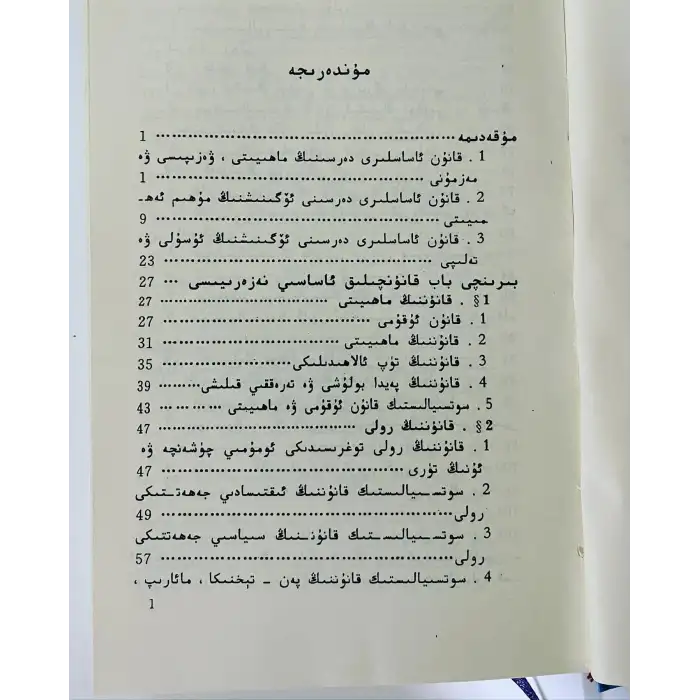 مۇندەرىجە
مۇقەددىمە ⋯⋯⋯⋯⋯⋯⋯⋯⋯⋯⋯⋯⋯⋯ 1
1 . قانۇن ئاساسلىرى دەرسىنىڭ ماھىيىتى ، ۋەزىپىسى ۋە
مەزمۇنى ⋯⋯⋯⋯⋯⋯⋯⋯⋯⋯⋯⋯⋯⋯ 1
2 . قانۇن ئاساسلىرى دەرسىنى ئۆگىنىشنىڭ مۇھىم ئەھ-
مىيىتى ⋯⋯⋯⋯⋯⋯⋯⋯⋯⋯⋯⋯⋯⋯ 9
3 . قانۇن ئاساسلىرى دەرسىنى ئۆگىنىشنىڭ ئۇسۇلى ۋە
تەلىپى ⋯⋯⋯⋯⋯⋯⋯⋯⋯⋯⋯⋯⋯⋯ 23
بىرىنچى باب قانۇنچىلىق ئاساسىي نەزەرىيىسى ⋯ 27
§1 . قانۇننىڭ ماھىيىتى ⋯⋯⋯⋯⋯⋯⋯⋯⋯⋯ 27
1 . قانۇن ئۇقۇمى ⋯⋯⋯⋯⋯⋯⋯⋯⋯⋯⋯⋯ 27
2 . قانۇننىڭ ماھىيىتى ⋯⋯⋯⋯⋯⋯⋯⋯⋯⋯ 31
3 . قانۇننىڭ تۈپ ئالاھىدىلىكى ⋯⋯⋯⋯⋯⋯⋯ 35
4 . قانۇننىڭ پەيدا بولۇشى ۋە تەرەققىي قىلىشى ⋯⋯⋯ 39
5 . سوتسىيالىستىك قانۇن ئۇقۇمى ۋە ماھىيىتى ⋯ ⋯⋯⋯ 43
§2 . قانۇننىڭ رولى ⋯⋯⋯⋯⋯⋯⋯⋯⋯⋯⋯⋯ 47
1 . قانۇننىڭ رولى توغرىسىدىكى ئومۇمىي چۈشەنچە ۋە
ئۇنىڭ تۈرى ⋯⋯⋯⋯⋯⋯⋯⋯⋯⋯⋯⋯⋯ 47
2 . سوتسىيالىستىك قانۇننىڭ ئىقتىسادىي جەھەتتىكى
رولى ⋯⋯⋯⋯⋯⋯⋯⋯⋯⋯⋯⋯⋯⋯⋯ 49
3 . سوتسىيالىستىك قانۇننىڭ سىياسىي جەھەتتىكى
رولى ⋯⋯⋯⋯⋯⋯⋯⋯⋯⋯⋯⋯⋯⋯⋯ 57
4 . سوتسىيالىستىك قانۇننىڭ پەن - تېخنىكا ، مائارىپ ،
1